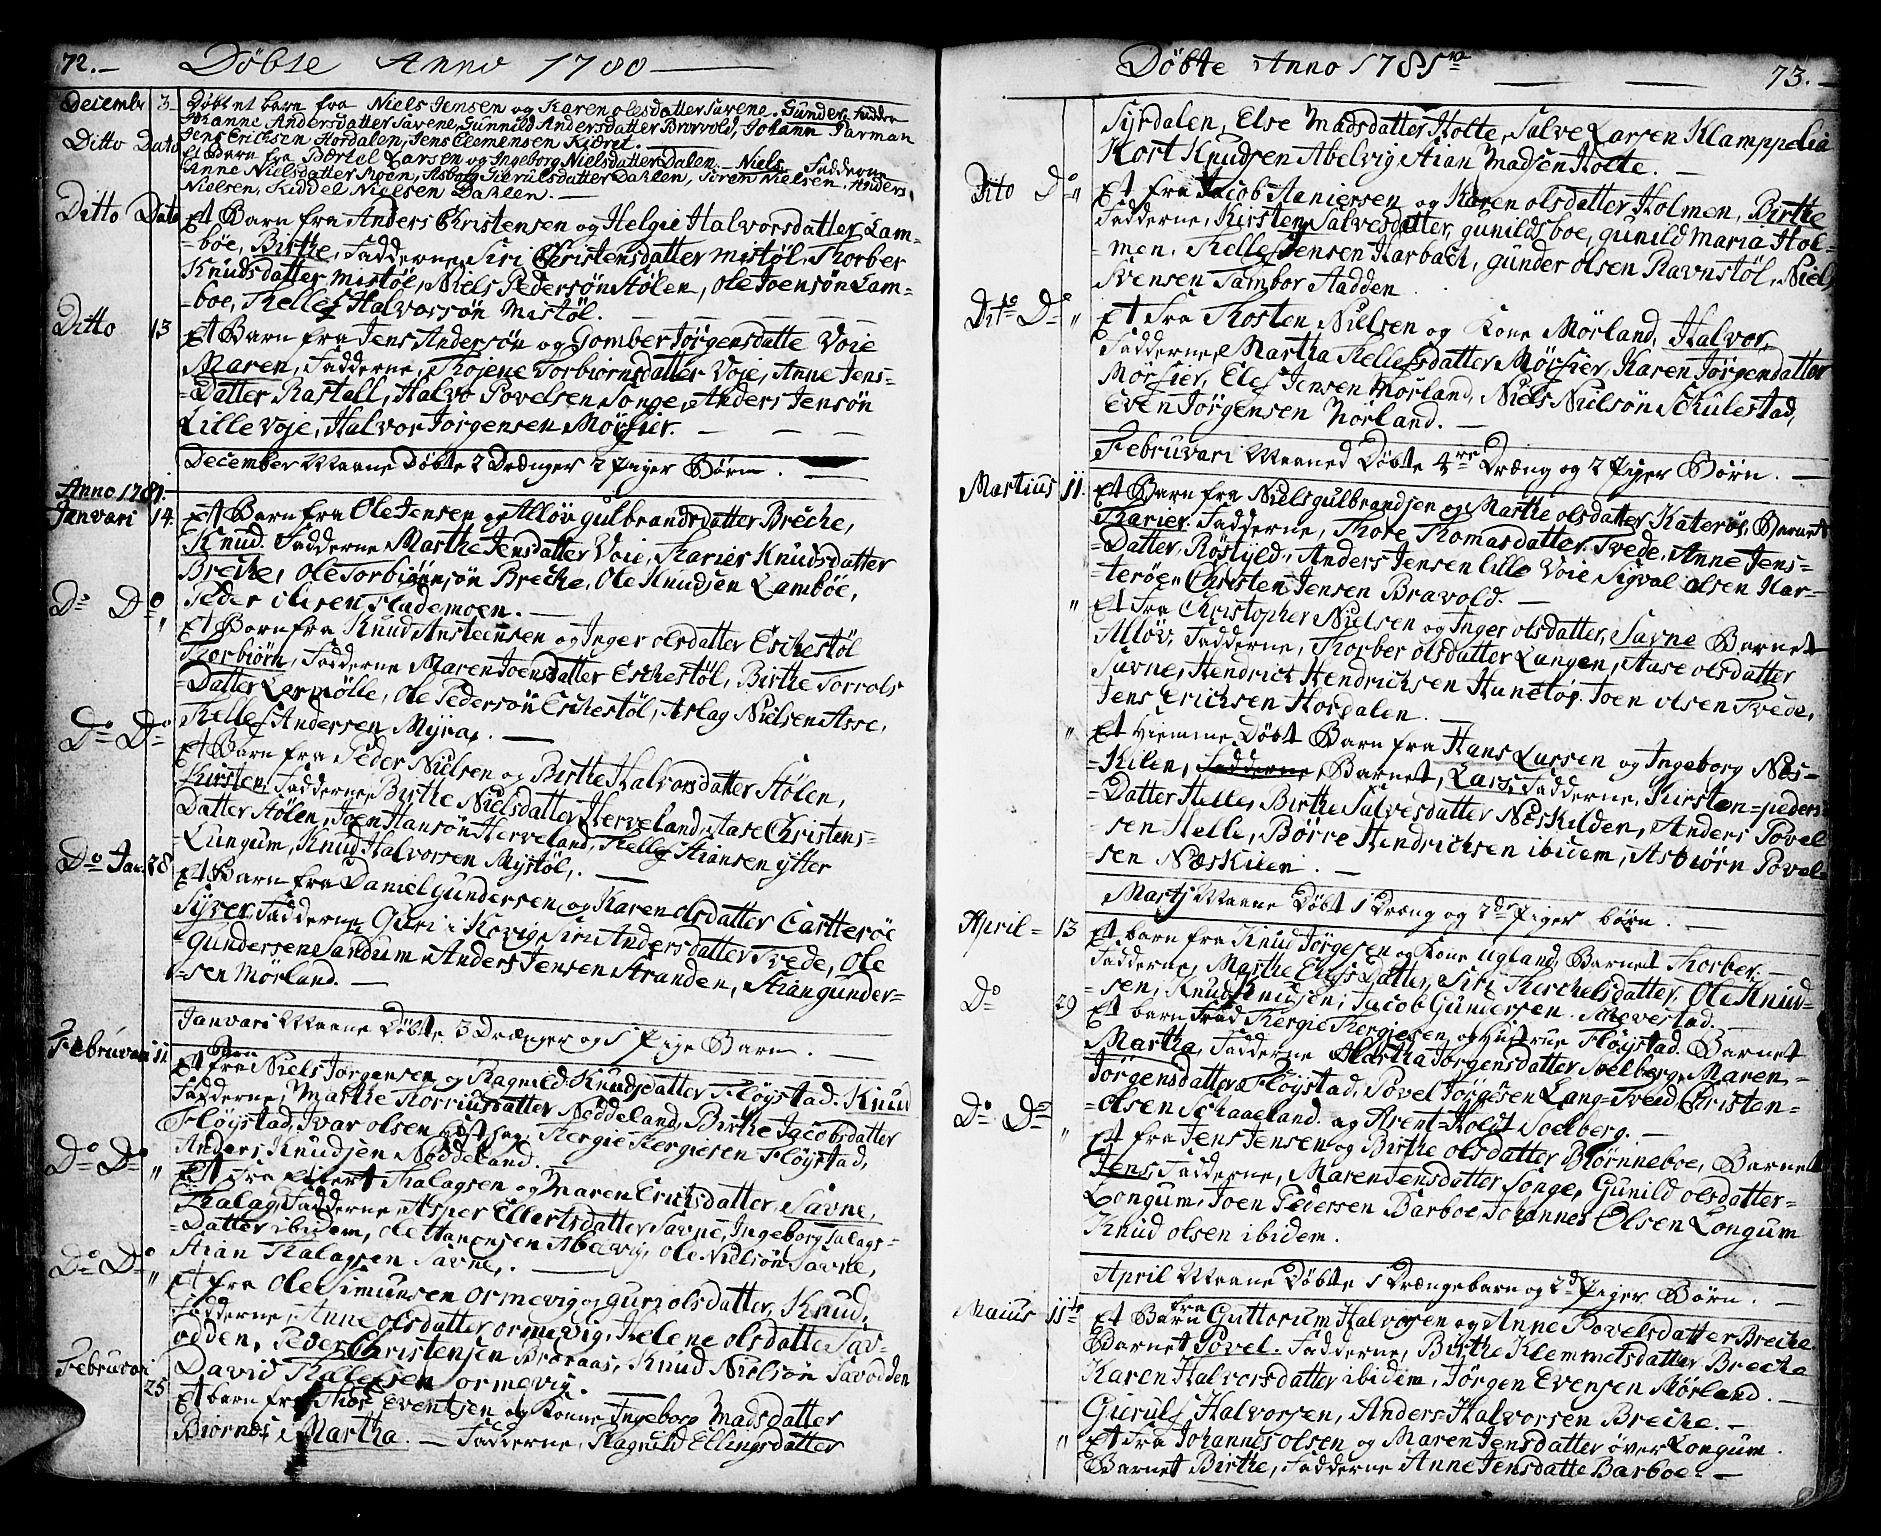 72.
Döbte Anno 1780
Decembr 3 Döbt et barn fra Niels Jensen og Karen olesdatter Savene. Gunder, fadder
Johanne Andersdatter Savene, Gunnild Andersdatter Bravold, Johann Parman
Jens Erichsen Hordalen, Jens Clemensen Kjæret.
Ditto Dato et Barn fra Bærtel Larsen og Ingeborg Nielsdatter Dalen. Niels Fadderne
Anne Nielsdatter Asborg Gierulsdatter Dahlen, Sören Nielsen, Anders
Nielsen, Kiddel Nielsen Dahlen.
Ditto Dato Et Barn fra Anders Christensen og Helgie Halvorsdatter Lam-
böe, Birthe, Fadderne, Siri Christensdatter mistöl, Thorber
Knudsdatter mistöl, Niels Pedersön Stölen, Ole Joensön Lam-
boe, Kellef Halvorsön Mistöl.
Ditto 13 Et Barn fra Jens Andersön og Gomber Jörgensdatte Voie
Maren, Fadderne, Thojene Torbiornsdatter Voje, Anne Jens-
Datter Rastell, Halvo Povelsen Songe, Anders Jensön
Lille Voje, Halvor Jörgensen Möysier.
December Maane Döbte 2 Drænger 2 Piger Börn.
Anno 1781.
Janvari 14 Et Barn fra Ole Jensen og Allöv gulbrandsdatter Breche,
Knud. Fadderne Marthe Jensdatter Voie, Karier Knudsdatter
Breche, Ole Torbiönsön Breche, Ole Knudsen Lamböe,
Peder olesen Flademoen.
Do Do Et Barn fra Knud Ansteensen og Inger olsdatter Eschestöl
Thorbiörn, Fadderne Maren Joensdatter Eschestöl, Birthe Torrols
Datter Lermölle, Ole Pedersön Eschestöl, Aslag Nielsen Asse,
Kellef Andersen Myra.
Do Do Et Barn fra Peder Nielsen og Birthe Halvorsdatter Stölen,
Kirsten, Fadderne Birthe Nielsdatter Herveland, Aase Christens-
Datter Stölen, Joen Hansön Herveland, Kellef Stiansen ytter
Lungum, Knud Halvorsen Mystöl.
Do Jan. 28 Et Barn fra Daniel Gundersen og Karen olsdatter Eartteröe
Syver, Fadderne, Guri i Kovig, Siri Andersdatter Tvede, Ole
Gundersen Sandum, Anders Jensen Stranden, Stian gunder-
sen Mörland.
Janvari Maane Döbte, 3 Drænger og 1 Pige Barn.
Februvari 11 Et Barn fra Niels Jörgensen og Ragnild Knudsdatter Flöystad. Knud
Fadderne, Marthe Dorriusdatter Nöddeland, Birthe Jacobsdatter
Flöystad, Ivar olsen Kergie Kergiesen Flöystad,
Anders Knudsen Nöddeland.
Do Do " Et fra Ellert Thalagsen og Maren Ericksdatter, Savne,
Thalag, Fadderne Asper Ellertsdatter Savne, Ingeborg Talags-
Datter ibidem, ole Hansen Abelvig, ole Nielsön Savne,
Stian Thalagsen Savne,
Do Do " Et fra Ole Simunsen Ormevig og guri olsdatter, Knud,
Fadderne, Anne olsdatter ormevig, Helene olsdatter Sav-
odden, Peder Christensen Braraas, Knud Nielsön Savodden
David Thalessen ormevig.
Februvari 25 Et barn fra Evensen og Konne Ingeborg Madsdatter
Martha. Fadderne, Ragnild Ellingsdatter
Döbte Anno 1781
73.
Syrdalen, Else Madsdatter Holte, Salve Larsen Klamppelia
Kort Knudsen Abelvig Stian Madsen Holte.
Dito Do " Et fra Jacob Staniersen og Karen olsdatter Holmen, Birthe
Fadderne, Kirsten Salvesdatter, gunildsboe, gunild Maria Hol-
men, Kellef Jensen Harbach, gunder olsen Ravnstöl, Niels
Svensen Tambor Stadden
Dito Do " Et fra Thosten Nielsen og Kone Mörland, Halvor,
Fadderne, Martha Kellefsdatter Mörsier, Karen Jörgensdatter
Mörsier, Elef Jensen Morland, Niels Nielsön Schulestad,
Even Jörgensen Norland.
Februvari Maaned Döbte 4re Dræng og 2 Piger Börn.
Martius 11. Et Barn fra Niels gulbrandsen og Marthe olsdatter Kateröe, Barnet
Karier. Fadderne, Thore Thomasdatter Tvede, Anne Jens-
Datter, Röstyld, Anders Jensen lille Voie Sigval olsen Kar-
teröe, Christen Jensen Bravold.
" Et fra Christopher Nielsen og Inger olsdatter, Savne Barnet
Allöv, Fadderne, Thorber olsdatter Langen, Aase olsdatter
Savne, Hendrick Hendricksen Hunetöp. Joen olsen Tvede,
Jens Ericksen Hordalen.
" Et Hiemme Döbt Barn fra Hans Larsen og Ingeborg Nes-
Kilen, Fadderne, Barnet, Lars, Fadderne, Kirsten peders-
Datter Helle, Birthe Salvesdatter Neskilden, Anders Povel
sen Helle, Börre Hendricksen ibidem, Asbiörn Povel-
sen Næskilen.
Martj Maane Döbt 1 Dræng og 2de Piger börn.
April 13 Et barn fra Knud Jörgesen og Kone ugland, Barnet Thorber.
Fadderne, Marthe Elefs Datter, Siri Kerchelsdatter, Ole Knud-
sen, Knud Knudsen, Jacob Gundersen. Mevestad.
Do 29 Et barn Kergie Kergiesen og Hustrue Flöystad. Barnet
Martha, Fadderne Martha Jörgensdatter Soelberg, Maren
Jörgensdatter Flöystad, Povel Jörgesen Lang-Sveid, Christen-
olsen Schaaeland. og Arent Holdt Soelberg.
Do Do " Et fra Jens Jensen og Birthe olsdatter Biörnneboe, Barnet
Jens, Fadderne, Maren Jensdatter Songe, Gunild olsdatter-
Longum, Joen Pedersen Barboe, Johannes Olsen Longum
Knud olsen ibidem.
April Maane Döbte 1 Drængebarn og 2de Piger Börn.
Maius 11te Et Barn fra Guttorium Halvorsen og Anne Povelsdatter Breche.
Barnet Povel. Fadderne, Birthe Klemmetsdatter Breche
Karen Halvorsdatter ibidem, Jörgen Evensen Mörland.
Gieruls Halvorsen, Anders Halvorsen Breche.
" Et fra Johannes olsen og Maren Jensdatter över Longum.
Barnet Birthe, Fadderne Anne Jensdatte Barboe.